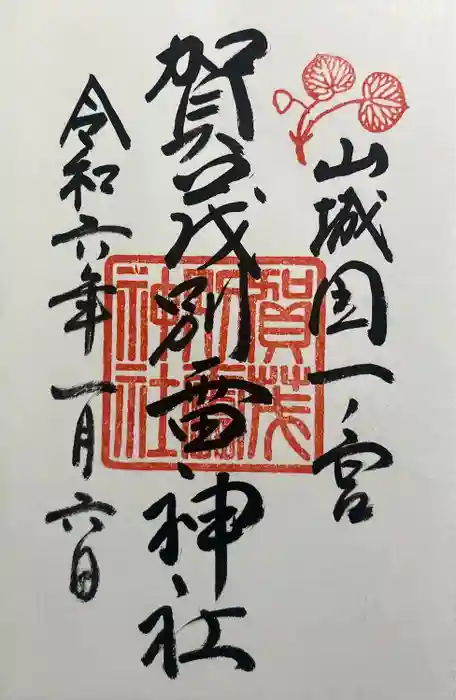 山城国一ノ宮
賀茂別雷神社
賀茂
別雷
神社
令和六年一月六日